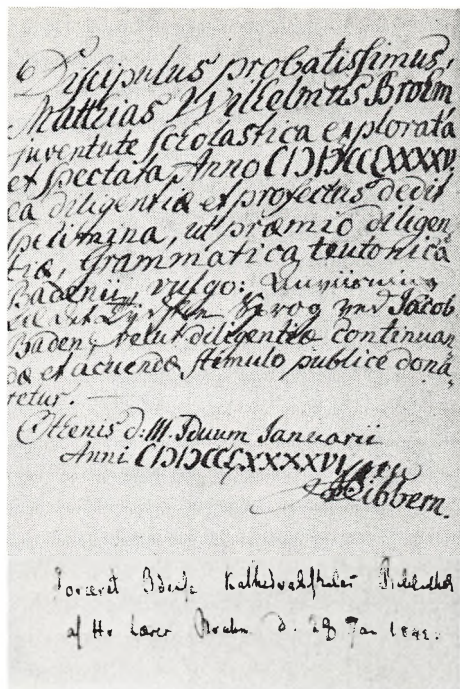 Discipulus probatissimus,
Matthias Wilhelmus Broem
juventute scolastica explorata
et spectata Anno CIƆIƆCCLXXXXV,
ea diligentiæ et profectus dedit
specimina, ut præmio diligen
tiæ, Grammatica teutonica
Badenii, vulgo: Anviisning
til det Tydske Sprog ved Jacob
Baden, velut diligentiæ continuan
dæ et acuendæ stimulo publice dona
retur.
Othenis d: III. Iduum Januarii
Anni CIƆIƆCCLXXXXVI
Sibbern.
foræret Odense Kathedralskoles Bibliothek
af Hr Lærer d. 28 Jan